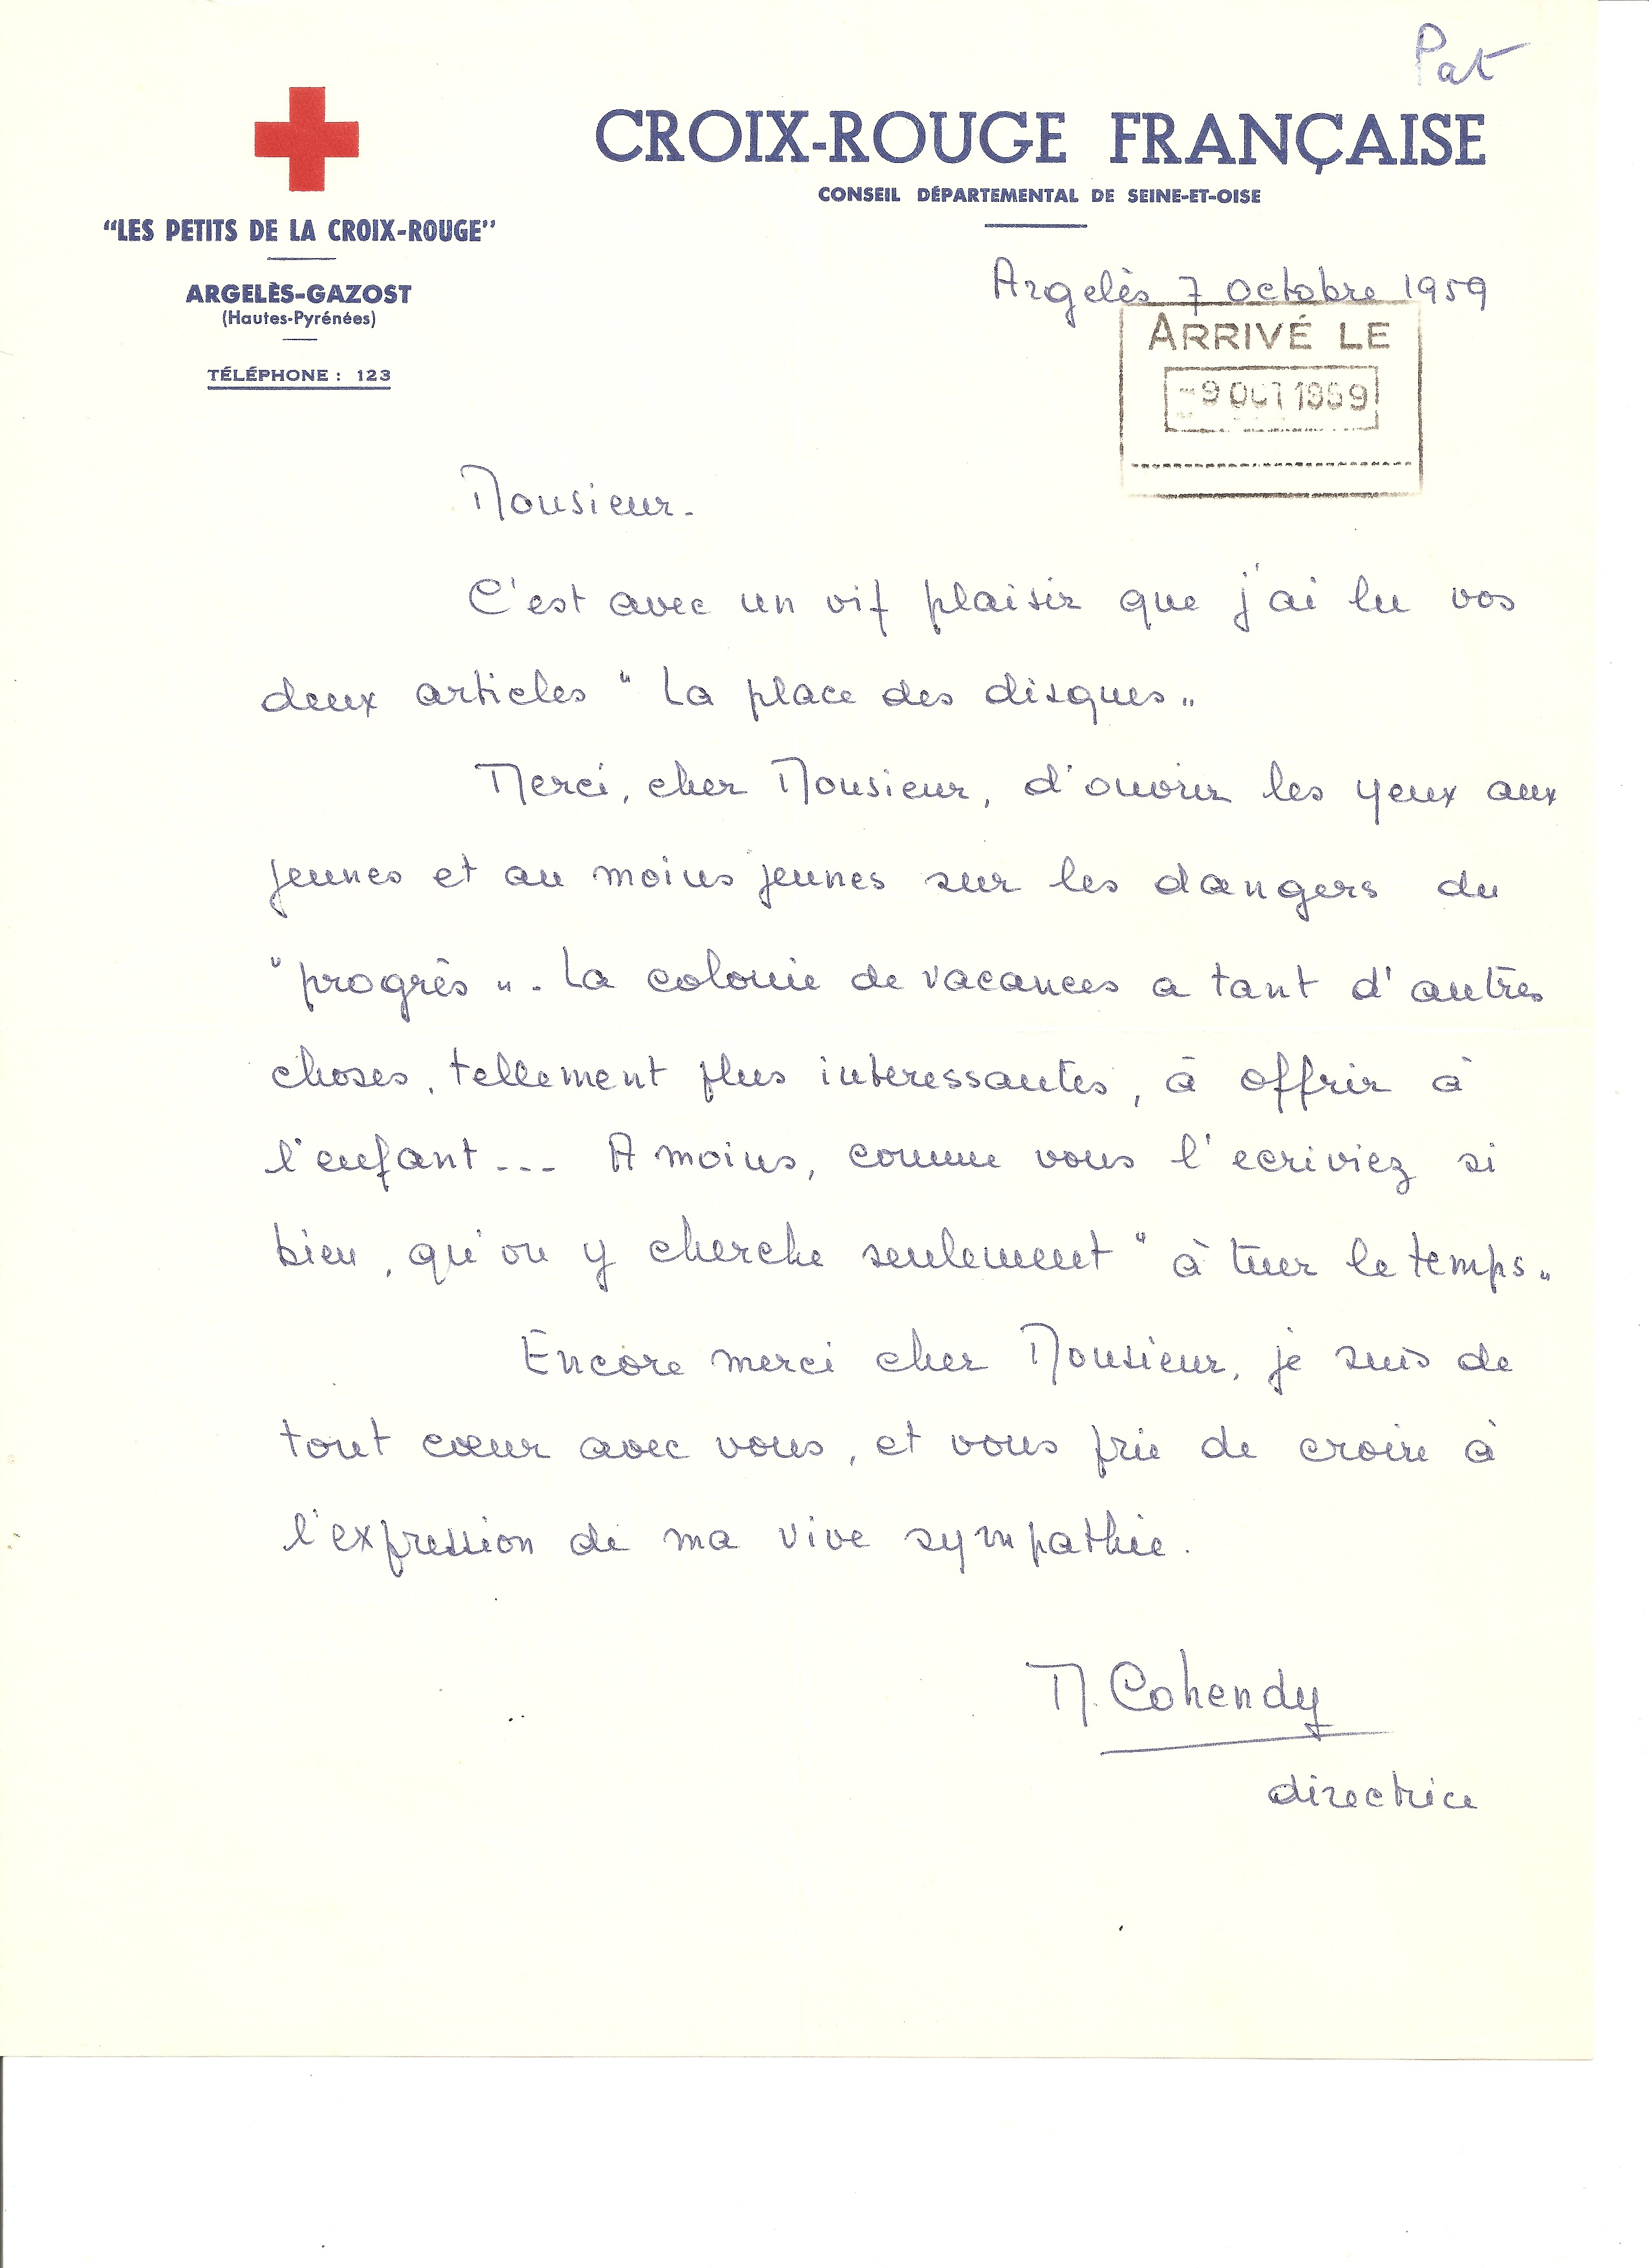 Pat
CROIX-ROUGE FRANÇAISE
CONSEIL DÉPARTEMENTAL DE SEINE-ET-OISE
"LES PETITS DE LA CROIX-ROUGE"
ARGELÈS-GAZOST
(Hautes-Pyrénées)
TÉLÉPHONE : 123
Argelès 7 octobre 1959
ARRIVÉ LE
-9 OCT 1959
Monsieur.
C'est avec un vif plaisir que j'ai lu vos
deux articles "La place des disques"
Merci, cher Monsieur, d'ouvrir les yeux aux
jeunes et au moins jeunes sur les dangers du
"progrès". La colonie de vacances a tant d'autres
choses, tellement plus intéressantes, à offrir à
l'enfant --- A moins, comme vous l'ecriviez si
bien, qu'on y cherche seulement "à tuer le temps"
Encore merci cher Monsieur, je suis de
tout cœur avec vous, et vous prie de croire à
l'expression de ma vive sympathie.
M. Cohendy
directrice